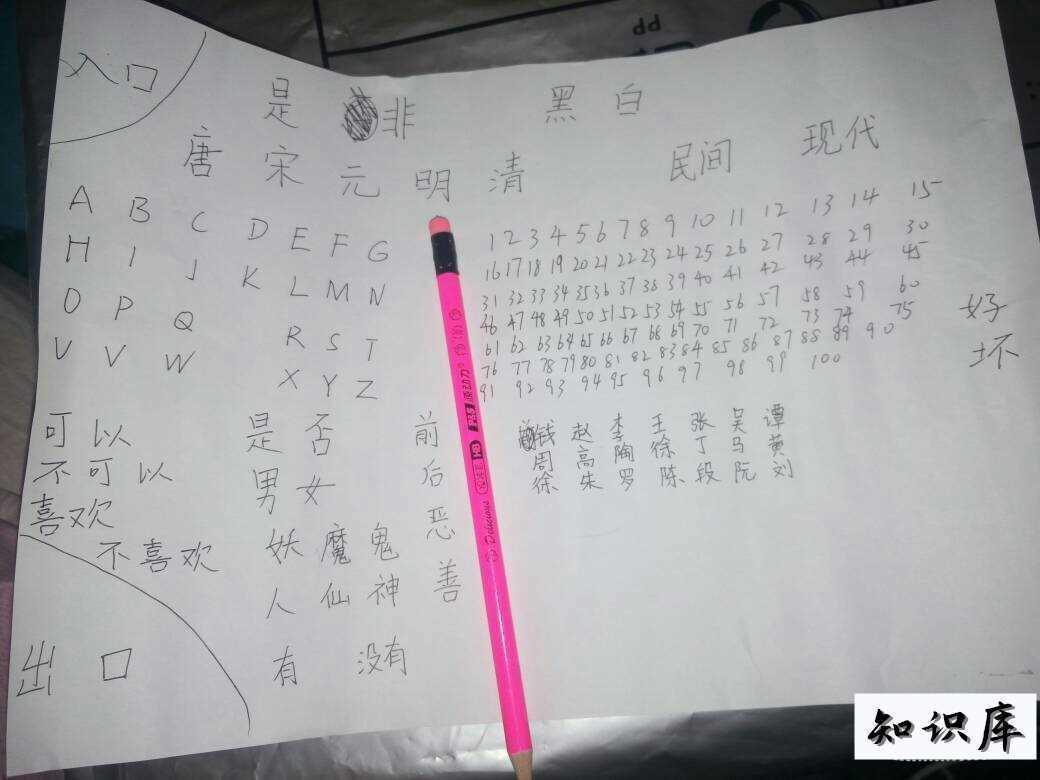 入口
是 非 黑 白
唐 宋 元 明 清 民间 现代
A B C D E F G
H I J K L M N
O P Q R S T
U V W X Y Z
1 2 3 4 5 6 7 8 9 10 11 12 13 14 15
16 17 18 19 20 21 22 23 24 25 26 27 28 29 30
31 32 33 34 35 36 37 38 39 40 41 42 43 44 45
46 47 48 49 50 51 52 53 54 55 56 57 58 59 60
61 62 63 64 65 66 67 68 69 70 71 72 73 74 75
76 77 78 79 80 81 82 83 84 85 86 87 88 89 90
91 92 93 94 95 96 97 98 99 100
好
坏
可以 是 否 前
不可以 男 女 后
喜欢 恶
不喜欢 妖 魔 鬼
人 仙 神 善
有 没有
钱 赵 李 王 张 吴 谭
周 高 陶 徐 丁 马 黄
徐 朱 罗 陈 段 阮 刘
出口
原动力
HB
Delicious
PP
知识库